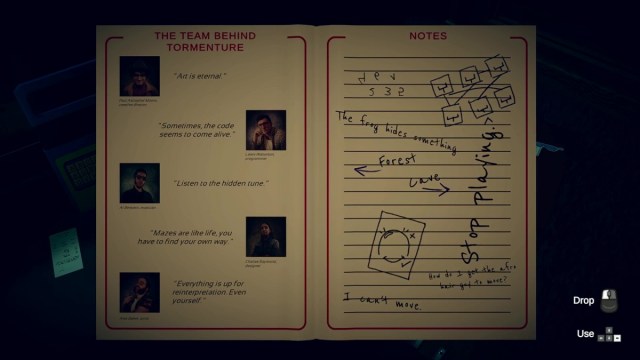 THE TEAM BEHIND
TORMENTURE
"Art is eternal."
"Sometimes, the code
seems to come alive."
"Listen to the hidden tune."
"Mazes are like life, you
have to find your own way."
"Everything is up for
reinterpretation. Even
yourself."
NOTES
The frog hides something
Forest
Cave
Stop playing.
How do I get the afro
hair guy to move?
I can't move.
Drop
Use